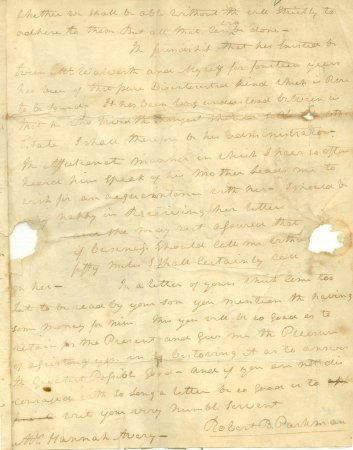 whether we shall be able without the will strictly to
adhere to them But all that can be done -
The friendship that has subsisted be
tween Mr. Walworth and Myself for fourteen years
has been of that pure Disinterested kind which is Rare
to be found. It has been long understood between us
that he who lived the longest should
Estate I shall therefore be his administrator.
The affectionate manner in which I have so often
heard him Speak of his Mother leads me to
wish for an acquaintance with her. I should be
very happy in Receiving her letter
she may rest assured that
if Business Should Call me within
fifty miles I Shall Certainly call
on her -
In a letter of yours which came too
late to be read by your son you mention the having
some money for him. This you will be so Good as to
retain for the Present and Give me the Pleasure
of assisting you in bestowing it as to answer
the Greatest Possible Good - And if you are not dis
couraged with so long a letter be so good as to
write your very humble Servant
Robert B. Parkman
Mrs. Hannah Avery -